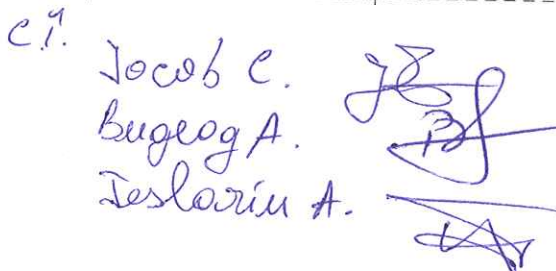 Iacob C.
Bugeag A.
Teslariu A.